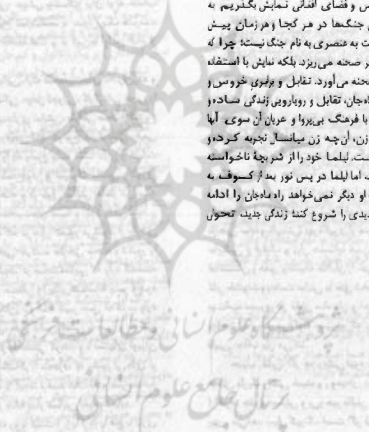 س و فضای افغانی نمایش بگذریم، به
جنگ‌ها در هر کجا و هر زمان پیش
ت به عنصری به نام جنگ نیست؛ چرا که
ر صحنه می‌ریزد. بلکه نمایش با استفاده
حنه می‌آورد. تقابل و برابری خروس و
ماه‌جان، تقابل و رویارویی زندگی ساده و
با فرهنگ بی‌پروا و عریان آن سوی آبها
زن، آن چه زن میانسال تجربه کرده و
ست. لیلما خود را از شر بچهٔ ناخواسته
اما لیلما در پس نور بعد از کسوف به
او دیگر نمی‌خواهد راه ماه‌جان را ادامه
دیدی را شروع کند؛ زندگی جدید، تحولی
پژوهشگاه علوم انسانی و مطالعات فرهنگی
پرتال جامع علوم انسانی